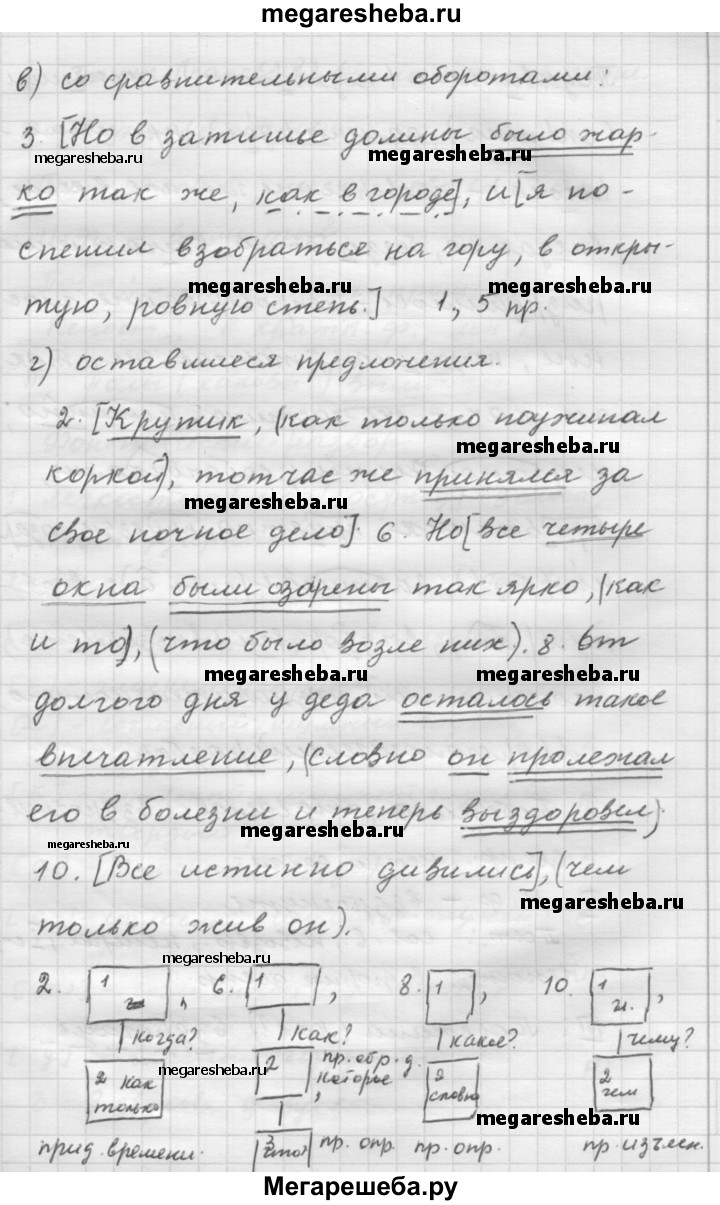 megaresheba.ru
в) со сравнительными оборотами:
3. [Но в затишье долины было жар-
megaresheba.ru megaresheba.ru
ко так же, как в городе], и [я по-
спешил взобраться на гору, в откры-
megaresheba.ru megaresheba.ru
тую, ровную степь.] 1, 5 пр.
г) оставшиеся предложения.
2. [Крутик, (как только поужинал
megaresheba.ru
коркой), тотчас же принялся за
megaresheba.ru
свое ночное дело]. 6. Но [все четыре
окна были озарены так ярко, (как
и то), (что было возле них). 8. От
megaresheba.ru megaresheba.ru
долгого дня у деда осталось такое
впечатление, (словно он пролежал
его в болезни и теперь выздоровел).
megaresheba.ru megaresheba.ru
10. [Все истинно дивились], (чем
только жив он).
megaresheba.ru megaresheba.ru
2. 1 , 6. 1 , 8. 1 , 10. 1 ,
когда? как? какое? чему?
megaresheba.ru megaresheba.ru
2 как только 2 пр. обр. д. которое, 2 словно 2 чем
megaresheba.ru
3 что
прид. времени. пр. опр. пр. опр. пр. изъясн.
megaresheba.ru
Мегарешеба.ру